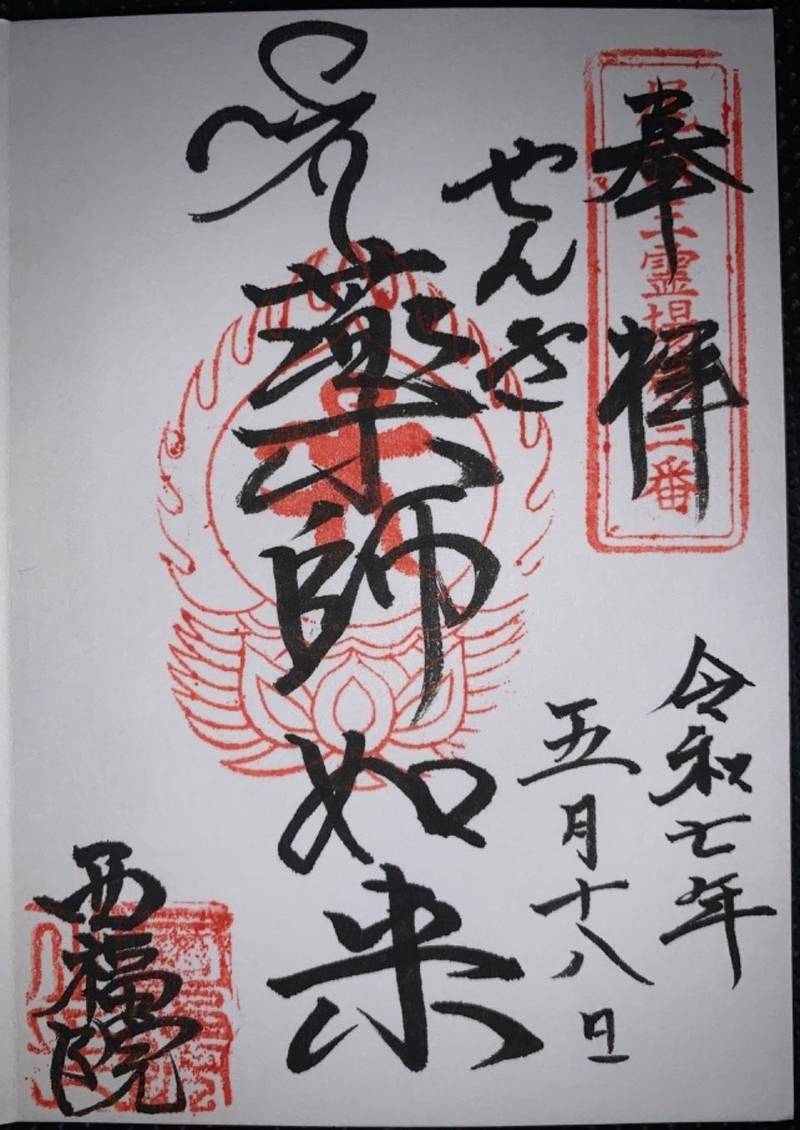 奉拝
三霊場
三番
令和七年
五月十八日
せんき
薬師如来
西福院